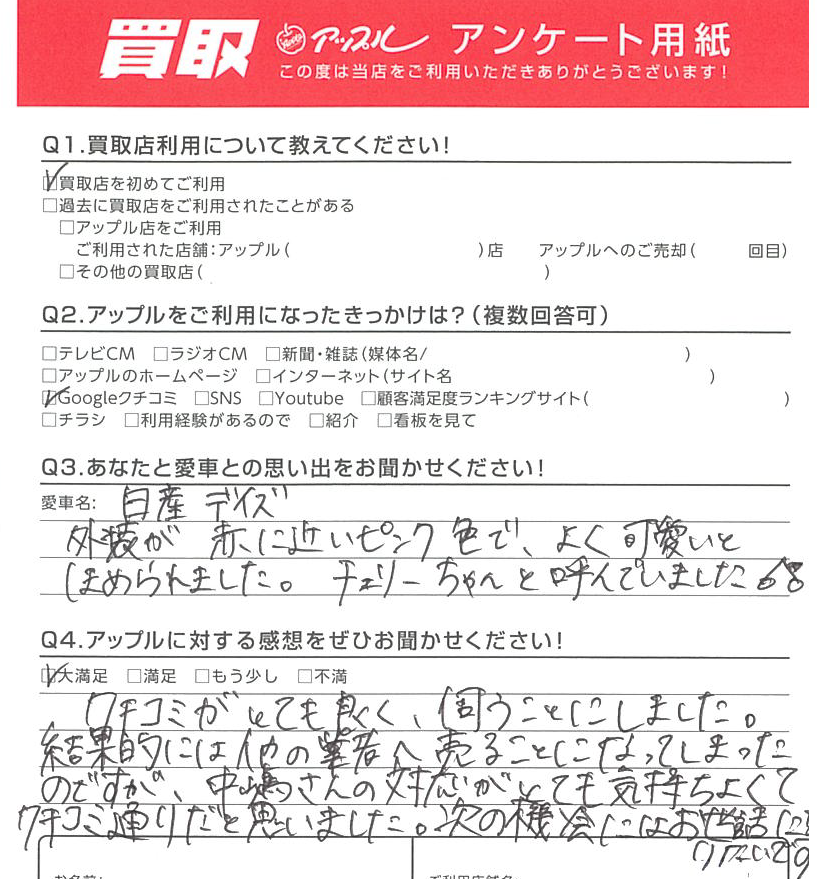 買取 アップル アンケート用紙
この度は当店をご利用いただきありがとうございます!
Q1.買取店利用について教えてください!
☑買取店を初めてご利用
□過去に買取店をご利用されたことがある
□アップル店をご利用
ご利用された店舗:アップル( )店 アップルへのご売却( 回目)
□その他の買取店( )
Q2.アップルをご利用になったきっかけは?(複数回答可)
□テレビCM □ラジオCM □新聞・雑誌(媒体名/ )
□アップルのホームページ □インターネット(サイト名 )
☑Googleクチコミ □SNS □Youtube □顧客満足度ランキングサイト( )
□チラシ □利用経験があるので □紹介 □看板を見て
Q3.あなたと愛車との思い出をお聞かせください!
愛車名: 日産 デイズ
外装が 赤に近いピンク色で、よく可愛いと
ほめられました。 チェリーちゃんと呼んでいました
Q4.アップルに対する感想をぜひお聞かせください!
☑大満足 □満足 □もう少し □不満
クチコミがとても良く、伺うことにしました。
結果的には他の業者へ売ることになってしまった
のですが、中嶋さんの対応がとても気持ちよくて
クチコミ通りだと思いました。次の機会にはお世話に
りたいで